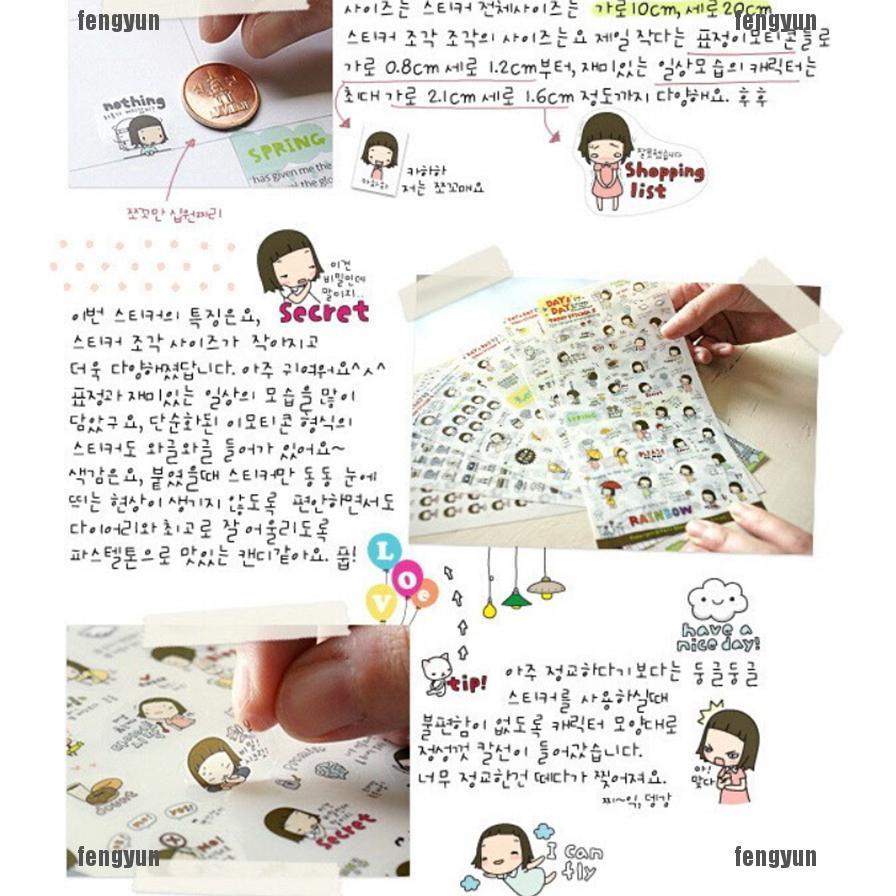 사이즈는 스티커 전체사이즈는 가로10cm, 세로20cm
fengyun
fengyun
스티커 조각 조각의 사이즈는요 제일 작다는 표정이모티콘들로
가로 0.8cm 세로 1.2cm부터, 재미있는 일상모습의 캐릭터는
최대 가로 2.1cm 세로 1.6cm 정도까지 다양해요. 후후
nothing
SPRING
has given me the
쪼꼬만 십원짜리
카하하
카하하
저는 쪼꼬매요
잘못했습니다
Shopping
list
이건
비밀인데
말이지..
Secret
이번 스티커의 특징은요,
스티커 조각 사이즈가 작아지고
더욱 다양해졌답니다. 아주 귀여워요^ㅅ^
표정과 재미있는 일상의 모습을 많이
담았구요, 단순화된 이모티콘 형식의
스티커도 와글와글 들어가 있어요~
색감은요, 붙였을때 스티커만 동동 눈에
띄는 현상이 생기지 않도록 편안하면서도
다이어리와 최고로 잘 어울리도록
파스텔톤으로 맛있는 캔디같아요. 풉!
DAY&
DAY
SPRING
RAINBOW
L
o
V
e
have a
nice day!
tip!
아주 정교하다기보다는 둥글둥글
스티커를 사용하실때
불편함이 없도록 캐릭터 모양대로
정성껏 칼선이 들어갔습니다.
너무 정교한건 떼다가 찢어져요.
찌~익, 뎅강
아!
맞다
donut
yes!
No!
Secret
I can
fly
fengyun
fengyun